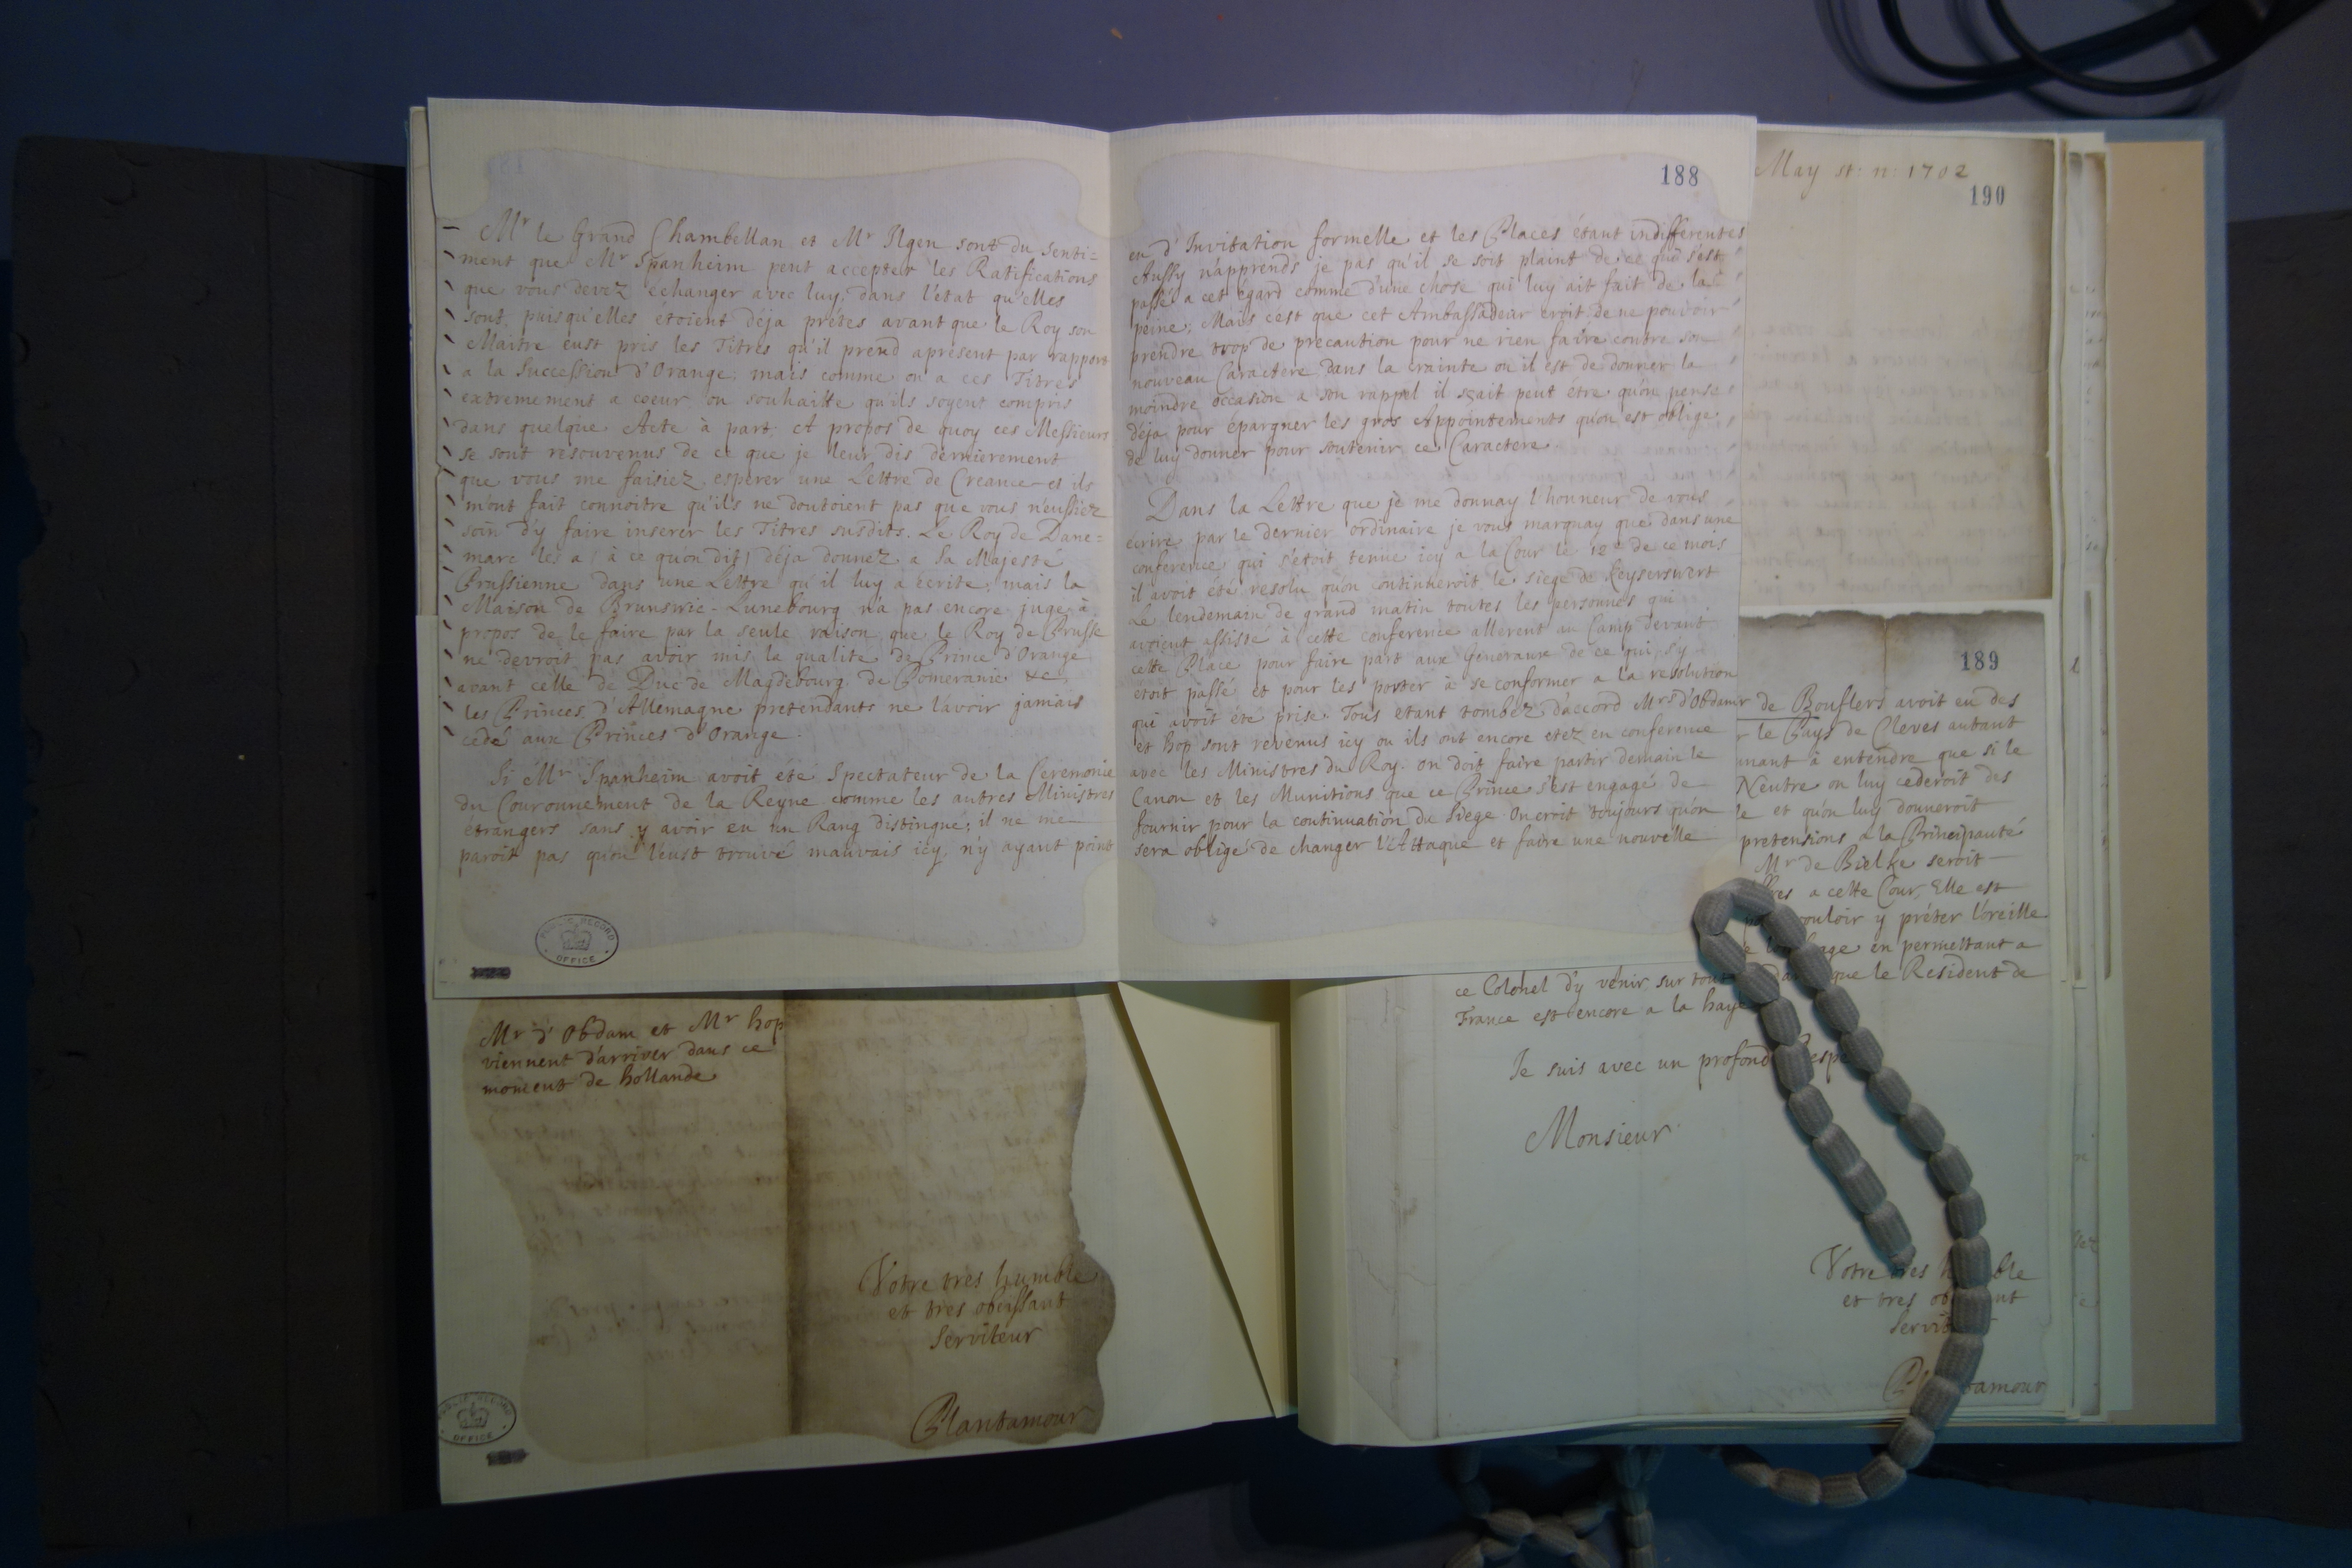 Mr le Grand Chambellan et Mr Ilgen sont du senti=
ment que Mr Spanheim peut accepter les Ratifications
que vous devez échanger avec luy, dans l'état qu'elles
sont, puisqu'elles étoient déja prétes avant que le Roy son
Maitre eust pris les Titres qu'il prend apresent par rapport
a la Succession d'Orange; mais comme on a ces Titres
extremement a coeur on souhaitte qu'ils soyent compris
dans quelque Acte à part. A propos de quoy ces Messieurs
se sont resouvenus de ce que je leur dis dernierement
que vous me faisiez esperer une Lettre de Creance et ils
m'ont fait connoitre qu'ils ne doutoient pas que vous n'eussiez
soin d'y faire inserer les Titres susdits. Le Roy de Dane=
marc les a (à ce qu'on dit) déja donnez a Sa Majesté
Prussienne dans une Lettre qu'il luy a écrite; mais la
Maison de Brunswic-Lunebourg n'a pas encore jugé à
propos de le faire par la seule raison que le Roy de Prusse
ne devroit pas avoir mis la qualité de Prince d'Orange
avant celle de Duc de Magdebourg de Pomeranie &c
les Princes d'Allemagne pretendants ne l'avoir jamais
cedé aux Princes d'Orange.
Si Mr Spanheim avoit été Spectateur de la Ceremonie
du Couronnement de la Reyne comme les autres Ministres
étrangers sans y avoir eu un Rang distingué; il ne me
paroit pas qu'on l'eust trouvé mauvais icy, n'y ayant point
188
eu d'Invitation formelle et les Places étant indifferentes
Aussy n'apprends je pas qu'il se soit plaint de ce qui s'est
passé a cet egard comme d'une chose qui luy ait fait de la
peine. Mais c'est que cet Ambassadeur croit de ne pouvoir
prendre trop de precaution pour ne rien faire contre son
nouveau Caractere dans la crainte ou il est de donner la
moindre occasion a son rappel il sçait peut étre qu'on pense
déja pour épargner les gros Appointements qu'on est obligé
de luy donner pour soutenir ce Caractere.
Dans la Lettre que je me donnay l'honneur de vous
écrire par le dernier ordinaire je vous marquay que dans une
conference qui s'étoit tenue icy a la Cour le 12e de ce mois
il avoit été resolu qu'on continueroit le siege de Keyserswert
Le lendemain de grand matin toutes les personnes qui
avoient assisté à cette conference allerent au Camp devant
cette Place pour faire part aux Generaux de ce qui s'y
étoit passé et pour les porter à se conformer a la resolution
qui avoit été prise. Tous étant tombez d'accord Mrs d'Obdam
et hop sont revenus icy ou ils ont encore etez en conference
avec les Ministres du Roy. on doit faire partir demain le
Canon et les Munitions que ce Prince s'est engagé de
fournir pour la continuation du Siege On croit toujours qu'on
sera obligé de changer l'Attaque et faire une nouvelle
May st: n: 1702
190
189
r de Bouflers avoit eu des
le Pays de Cleves autant
nant à entendre que si le
Neutre on luy cederoit des
le et qu'on luy donneroit
pretensions a la Principauté
Mr de Bielke seroit
a cette Cour, Elle est
vouloir y préter l'oreille
en permettant a
ce Colonel d'y venir, sur tout que le Resident de
France est encore a la haye
Je suis avec un profond
Monsieur
Votre tres
et tres
Mr d'Obdam et Mr hop
viennent d'arriver dans ce
moment de hollande
Votre tres humble
et tres obeissant
Serviteur
Plantamour
PUBLIC RECORD
OFFICE
PUBLIC RECORD
OFFICE